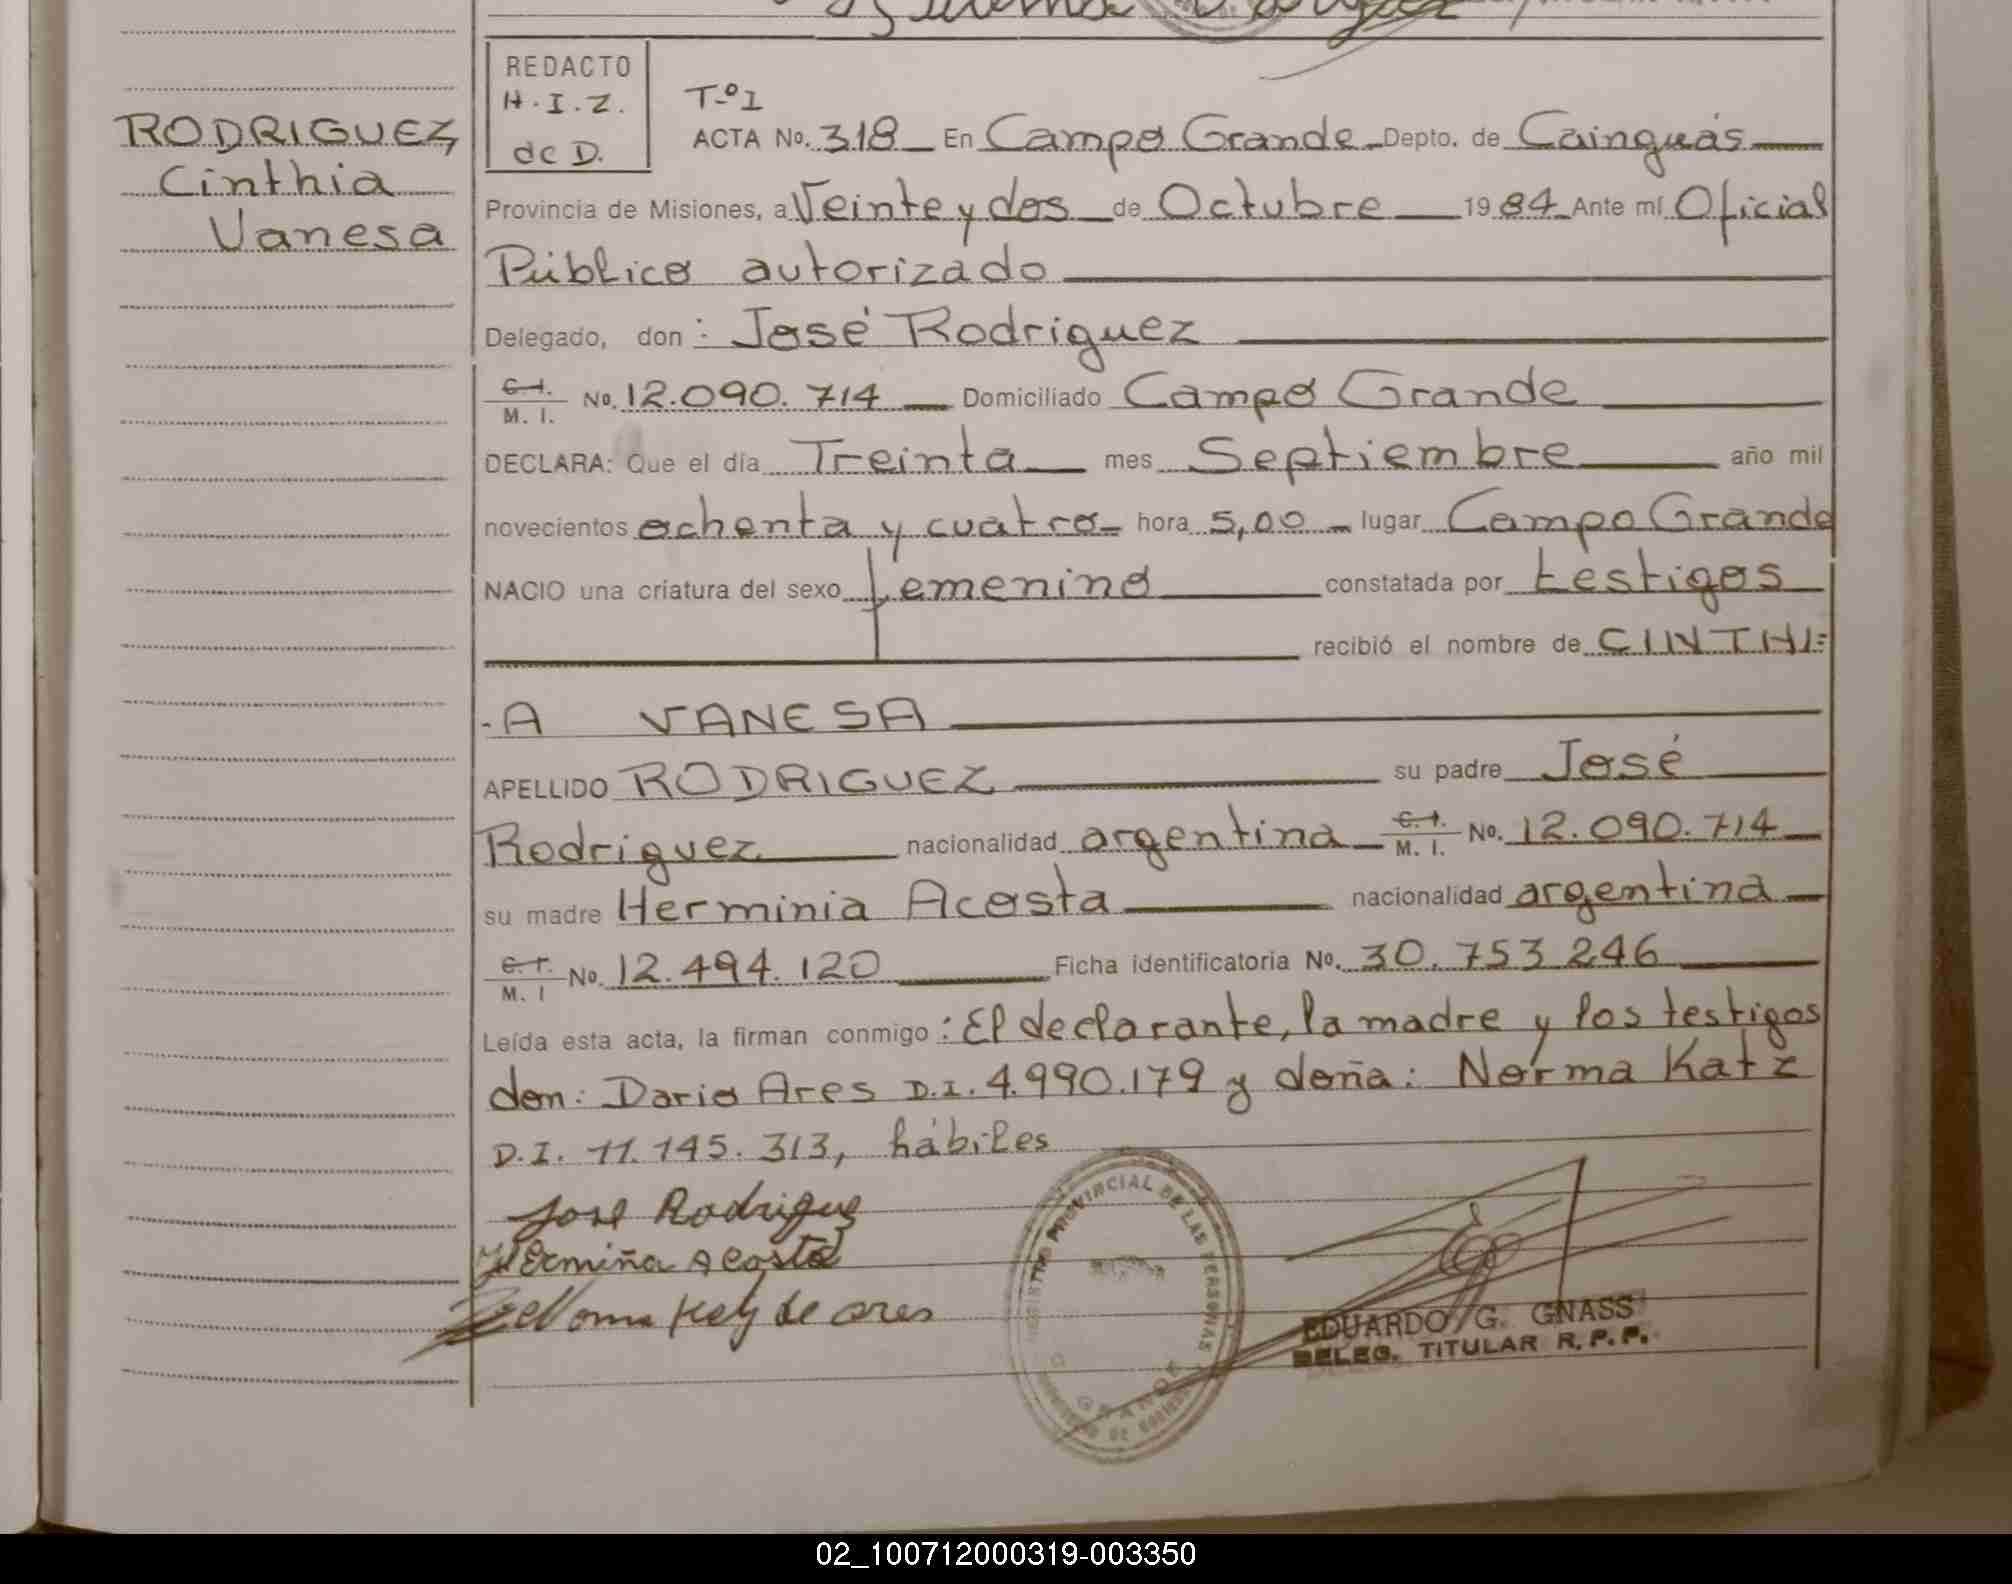 RODRIGUEZ
Cinthia
Vanesa
REDACTO
H.I.Z.
de D.
T-º I
ACTA No. 318 En Campo Grande Depto. de Cainguás
Provincia de Misiones, a Veinte y dos de Octubre 1984 Ante mí Oficial
Público autorizado
Delegado, don: José Rodriguez
C.I. M. I. No. 12.090.714 Domiciliado Campo Grande
DECLARA: Que el día Treinta mes Septiembre año mil
novecientos ochenta y cuatro hora 5,00 lugar Campo Grande
NACIO una criatura del sexo femenino constatada por testigos
recibió el nombre de CINTHI=
-A VANESA
APELLIDO RODRIGUEZ su padre José
Rodriguez nacionalidad argentina C.I. M. I. No. 12.090.714
su madre Herminia Acosta nacionalidad argentina
C.I. M. I No. 12.494.120 Ficha identificatoria No. 30.753 246
Leída esta acta, la firman conmigo: El declarante, la madre y los testigos
don: Dario Ares D.I. 4.990.179 y doña: Norma Katz
D.I. 11.145.313, hábiles
Jose Rodriguez
Hermiña Acosta
de ares
REGISTRO PROVINCIAL DE LAS PERSONAS
GRANDE
EDUARDO G. GNASS
DELEG. TITULAR R.P.P.
02_100712000319-003350